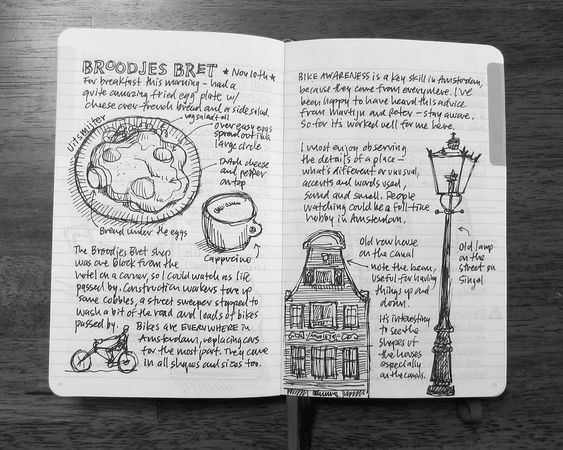 BROODJES BRET ★ Nov 10th ★
For breakfast this morning - had a
quite amazing fried egg plate w/
cheese over french bread and a side salad.
Uitsmijter
veg salad
over easy eggs
spread out in a
large circle
Dutch cheese
and pepper
on top
Bread under the eggs
Cappuccino
The Broodjes Bret shop
was one block from the
hotel on a corner, so I could watch as life
passed by. Construction workers tore up
some cobbles, a street sweeper stopped to
wash a bit of the road and loads of bikes
passed by. Bikes are EVERYWHERE in
Amsterdam, replacing cars
for the most part. They come
in all shapes and sizes too.
BIKE AWARENESS is a key skill in Amsterdam,
because they come from everywhere. I've
been happy to have heard this advice
from Martijn and Peter - stay aware.
So far it's worked well for me here.
I most enjoy observing
the details of a place -
what's different or unusual,
accents and words used,
sound and smell. People
watching could be a full-time
hobby in Amsterdam.
Old row house
on the canal
note the beam,
useful for having
things up and
down!
It's interesting
to see the
shapes of
the houses
especially
on the canals.
Old lamp
on the
street on
Singel